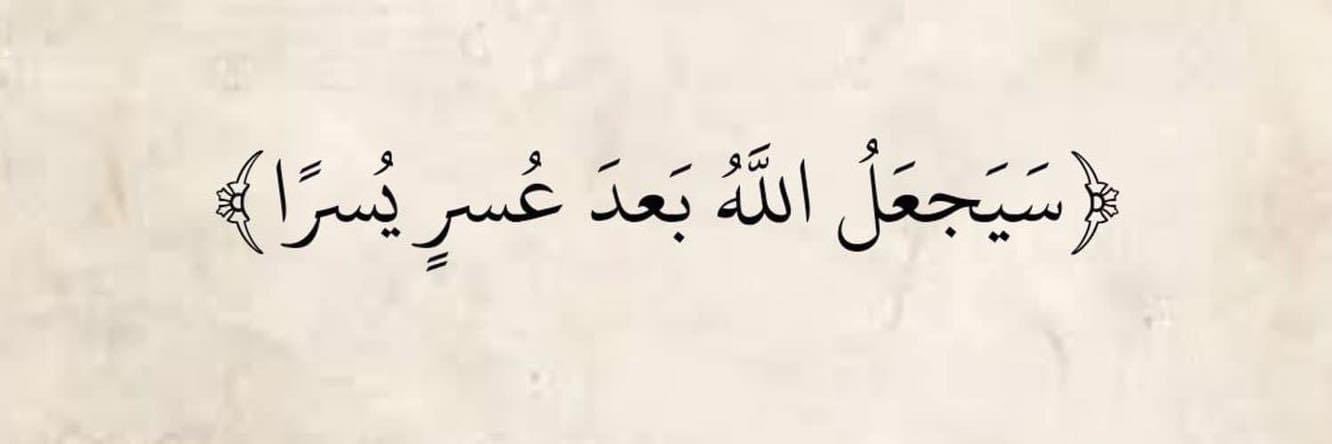 ﴿سَيَجعَلُ اللَّهُ بَعدَ عُسرٍ يُسرًا﴾